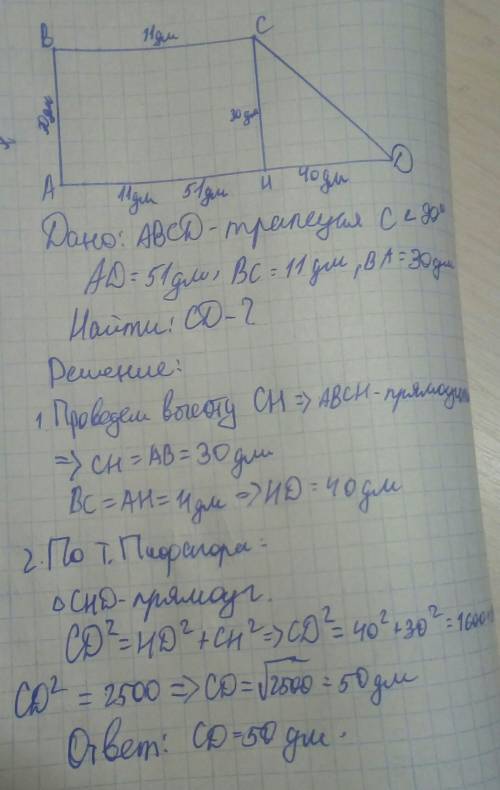 B 11дм C
30дм 30дм
A 11дм 51дм H 40дм D
Дано: ABCD - трапеция C < 90°
AD = 51дм, BC = 11дм, BA = 30дм
Найти: CD - ?
Решение:
1. Проведем высоту CH => ABCH - прямоуг
=> CH = AB = 30дм
BC = AH = 11дм => HD = 40дм
2. По т. Пифагора:
△CHD - прямоуг.
CD² = HD² + CH² => CD² = 40² + 30² = 1600
CD² = 2500 => CD = √2500 = 50дм
Ответ: CD = 50 дм.